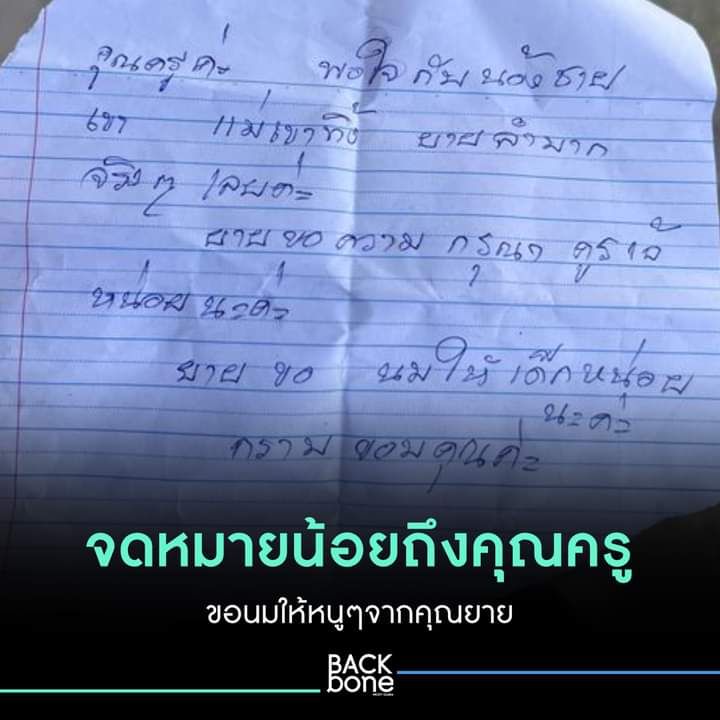 คุณครูค่ะ พอใจ กับ น้องชาย
เขา แม่เขาทิ้ง ยายลำมาก
จริงๆ เลยค่ะ
ยายขอ ความ กรุณา คูร เจ้
หน่อย นะค่ะ
ยาย ขอ นมให้ เด็กหน่อย
นะคะ
กราบ ขอบคุณค่ะ
จดหมายน้อยถึงคุณครู
ขอนมให้หนูๆจากคุณยาย
BACK
bone